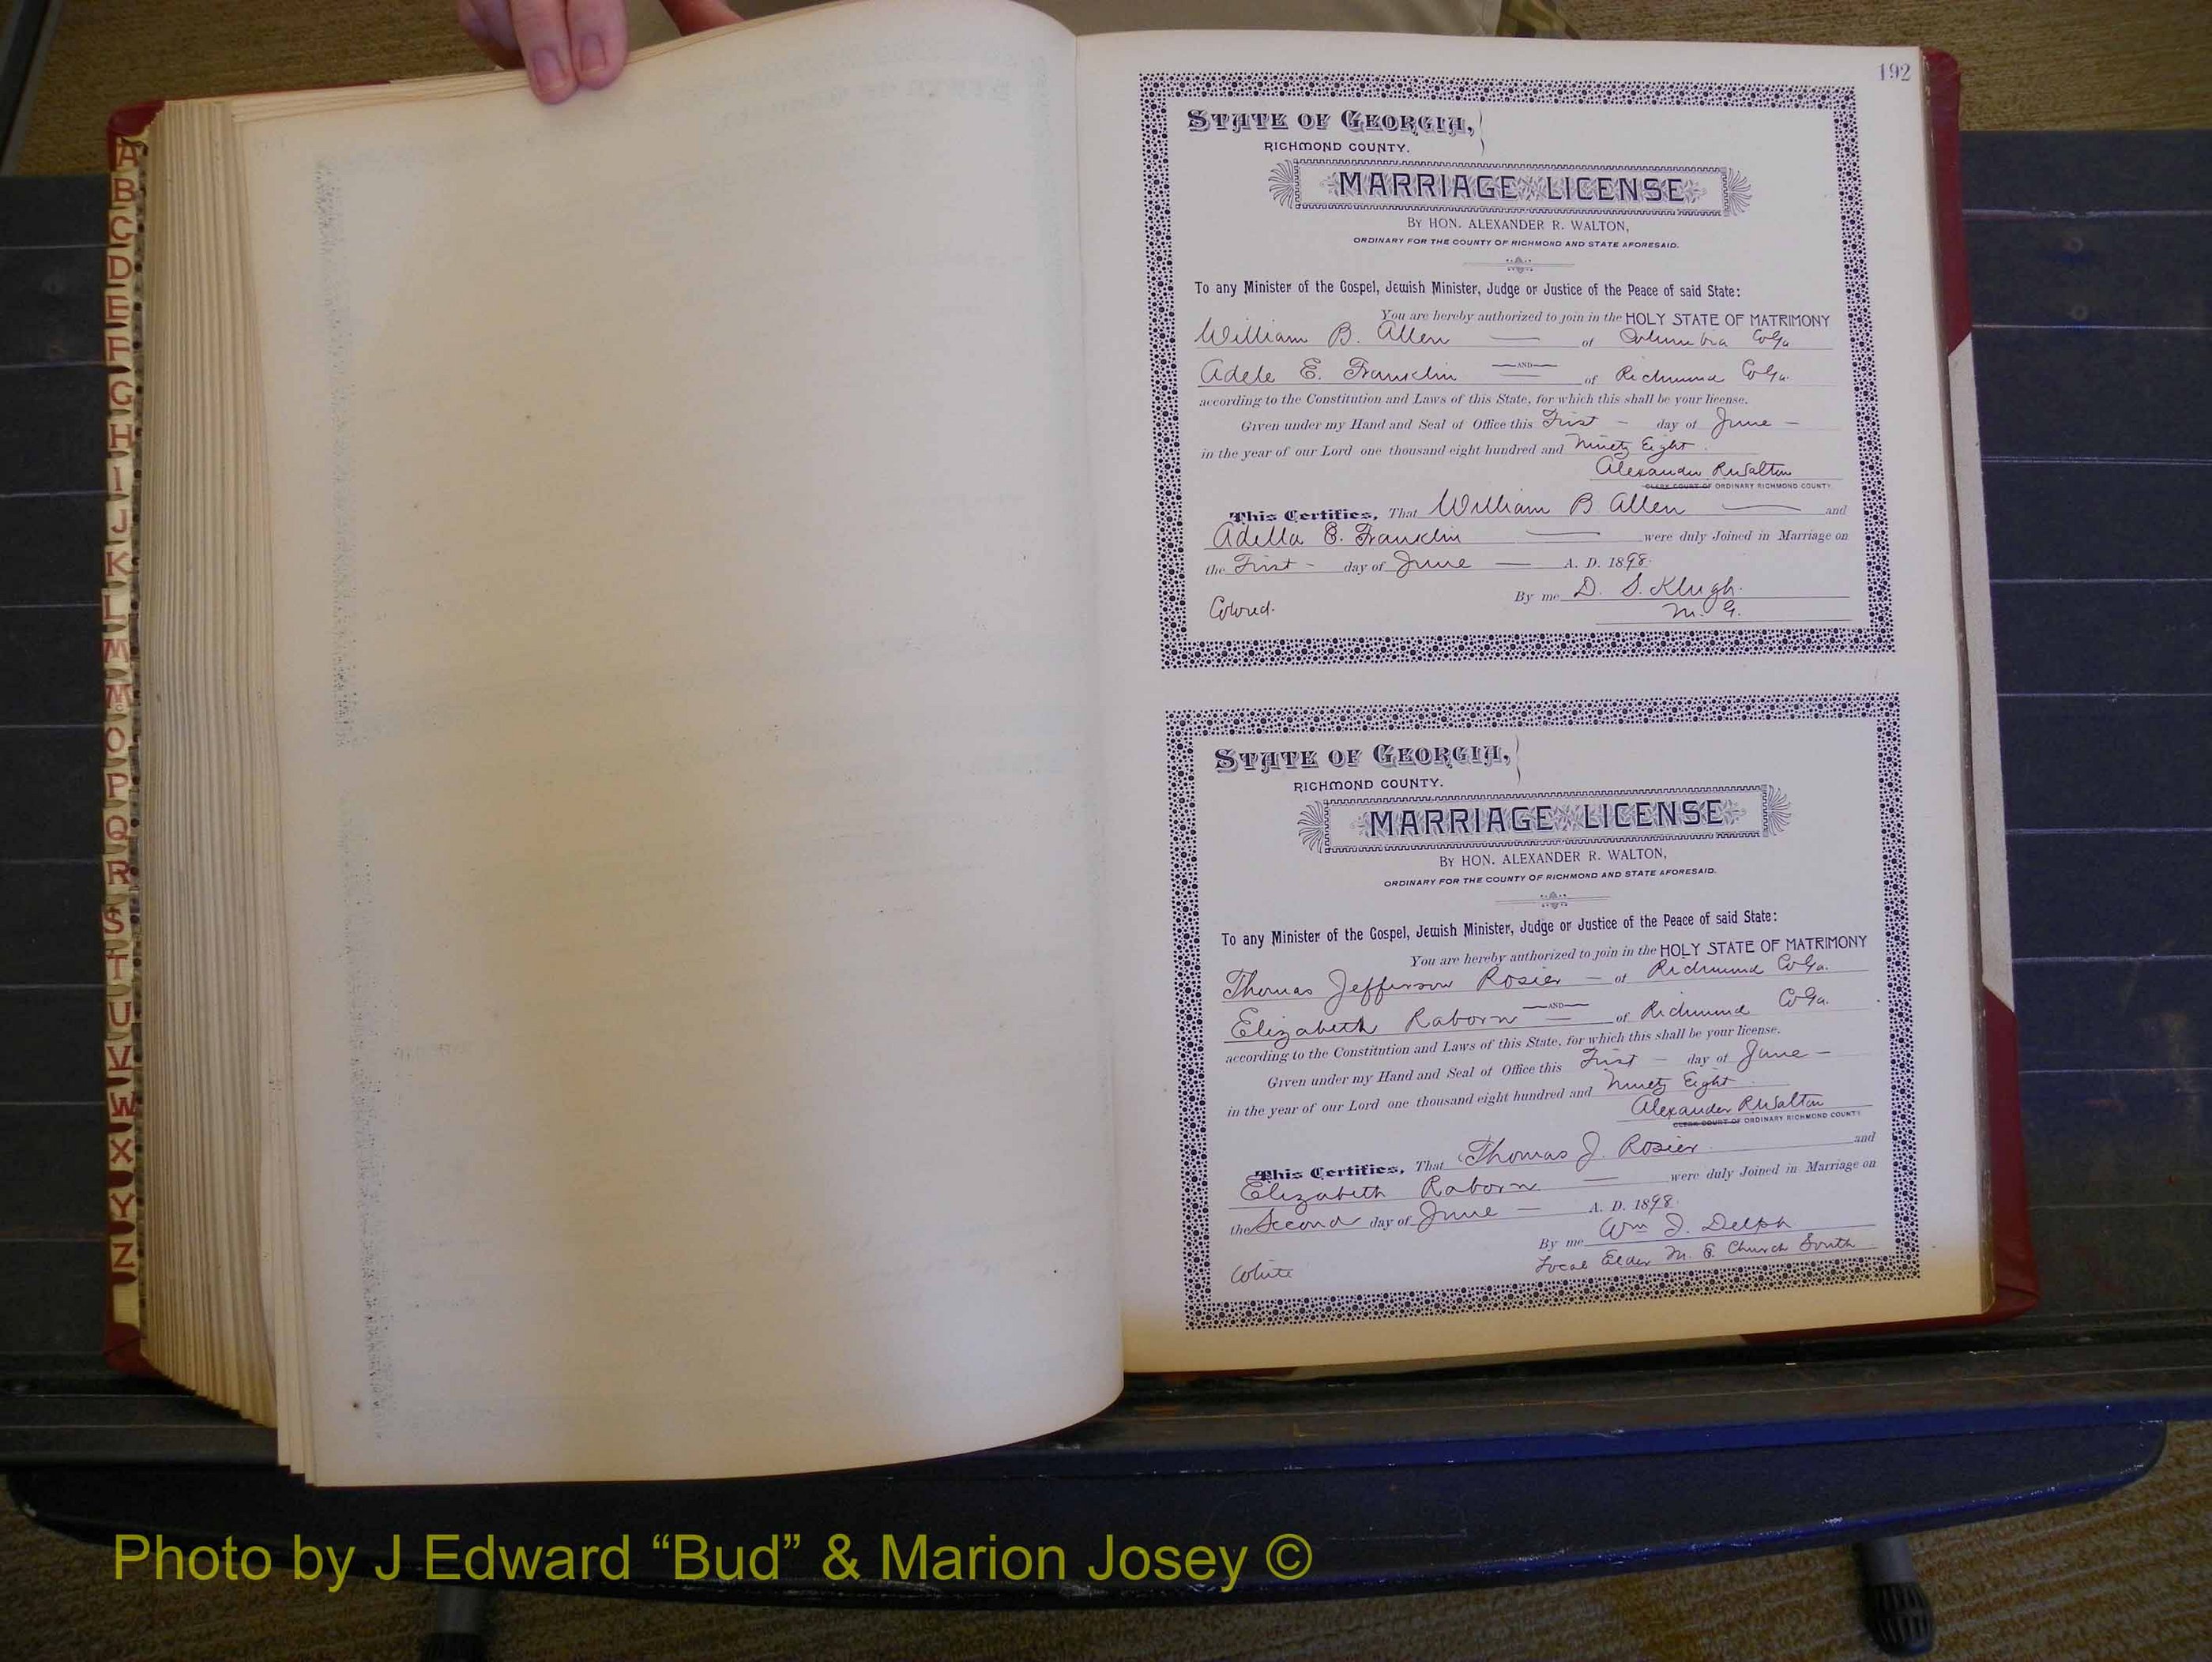 A
B
C
D
E
F
G
H
I
J
K
L
M
Mc
O
P
Q
R
S
T
U
V
W
X
Y
Z
192
STATE OF GEORGIA,
RICHMOND COUNTY.
MARRIAGE LICENSE
BY HON. ALEXANDER R. WALTON,
ORDINARY FOR THE COUNTY OF RICHMOND AND STATE AFORESAID.
To any Minister of the Gospel, Jewish Minister, Judge or Justice of the Peace of said State:
You are hereby authorized to join in the HOLY STATE OF MATRIMONY
William B. Allen of Columbia Co Ga.
AND
Adele E. Franklin of Richmond Co Ga.
according to the Constitution and Laws of this State, for which this shall be your license.
Given under my Hand and Seal of Office this First day of June
in the year of our Lord one thousand eight hundred and Ninety Eight.
Alexander R Walton
CLERK COURT OF ORDINARY RICHMOND COUNTY
This Certifies, That William B Allen and
Adella E. Franklin were duly Joined in Marriage on
the First day of June A. D. 1898.
By me D. S. Klugh.
Colored. M. G.
STATE OF GEORGIA,
RICHMOND COUNTY.
MARRIAGE LICENSE
BY HON. ALEXANDER R. WALTON,
ORDINARY FOR THE COUNTY OF RICHMOND AND STATE AFORESAID.
To any Minister of the Gospel, Jewish Minister, Judge or Justice of the Peace of said State:
You are hereby authorized to join in the HOLY STATE OF MATRIMONY
Thomas Jefferson Rosier of Richmond Co Ga.
AND
Elizabeth Raborn of Richmond Co Ga.
according to the Constitution and Laws of this State, for which this shall be your license.
Given under my Hand and Seal of Office this First day of June
in the year of our Lord one thousand eight hundred and Ninety Eight
Alexander R Walton
CLERK COURT OF ORDINARY RICHMOND COUNTY
This Certifies, That Thomas J. Rosier and
Elizabeth Raborn were duly Joined in Marriage on
the Second day of June A. D. 1898.
By me Wm J. Delph
White Local Elder M. E. Church South
Photo by J Edward “Bud” & Marion Josey ©